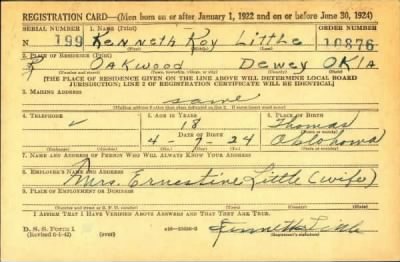 REGISTRATION CARD—(Men born on or after January 1, 1922 and on or before June 30, 1924)
SERIAL NUMBER 1. NAME (Print) ORDER NUMBER
N 199 Kenneth Roy Little 10876
(First) (Middle) (Last)
2. PLACE OF RESIDENCE (Print)
R OAKWOOD Dewey OKla
(Number and street) (Town, township, village, or city) (County) (State)
[THE PLACE OF RESIDENCE GIVEN ON THE LINE ABOVE WILL DETERMINE LOCAL BOARD
JURISDICTION; LINE 2 OF REGISTRATION CERTIFICATE WILL BE IDENTICAL]
3. MAILING ADDRESS
same
[Mailing address if other than place indicated on line 2. If same insert word same]
4. TELEPHONE 5. AGE IN YEARS 6. PLACE OF BIRTH
18 Thomas
DATE OF BIRTH (Town or county)
4-9-24 Oklahoma
(Exchange) (Number) (Mo.) (Day) (Yr.) (State or country)
7. NAME AND ADDRESS OF PERSON WHO WILL ALWAYS KNOW YOUR ADDRESS
8. EMPLOYER'S NAME AND ADDRESS
Mrs. Ernestine Little (wife)
9. PLACE OF EMPLOYMENT OR BUSINESS
(Number and street or R. F. D. number) (Town) (County) (State)
I AFFIRM THAT I HAVE VERIFIED ABOVE ANSWERS AND THAT THEY ARE TRUE.
D. S. S. FORM 1
(Revised 6-1-42) (over) Kenneth Little
(Registrant's signature)